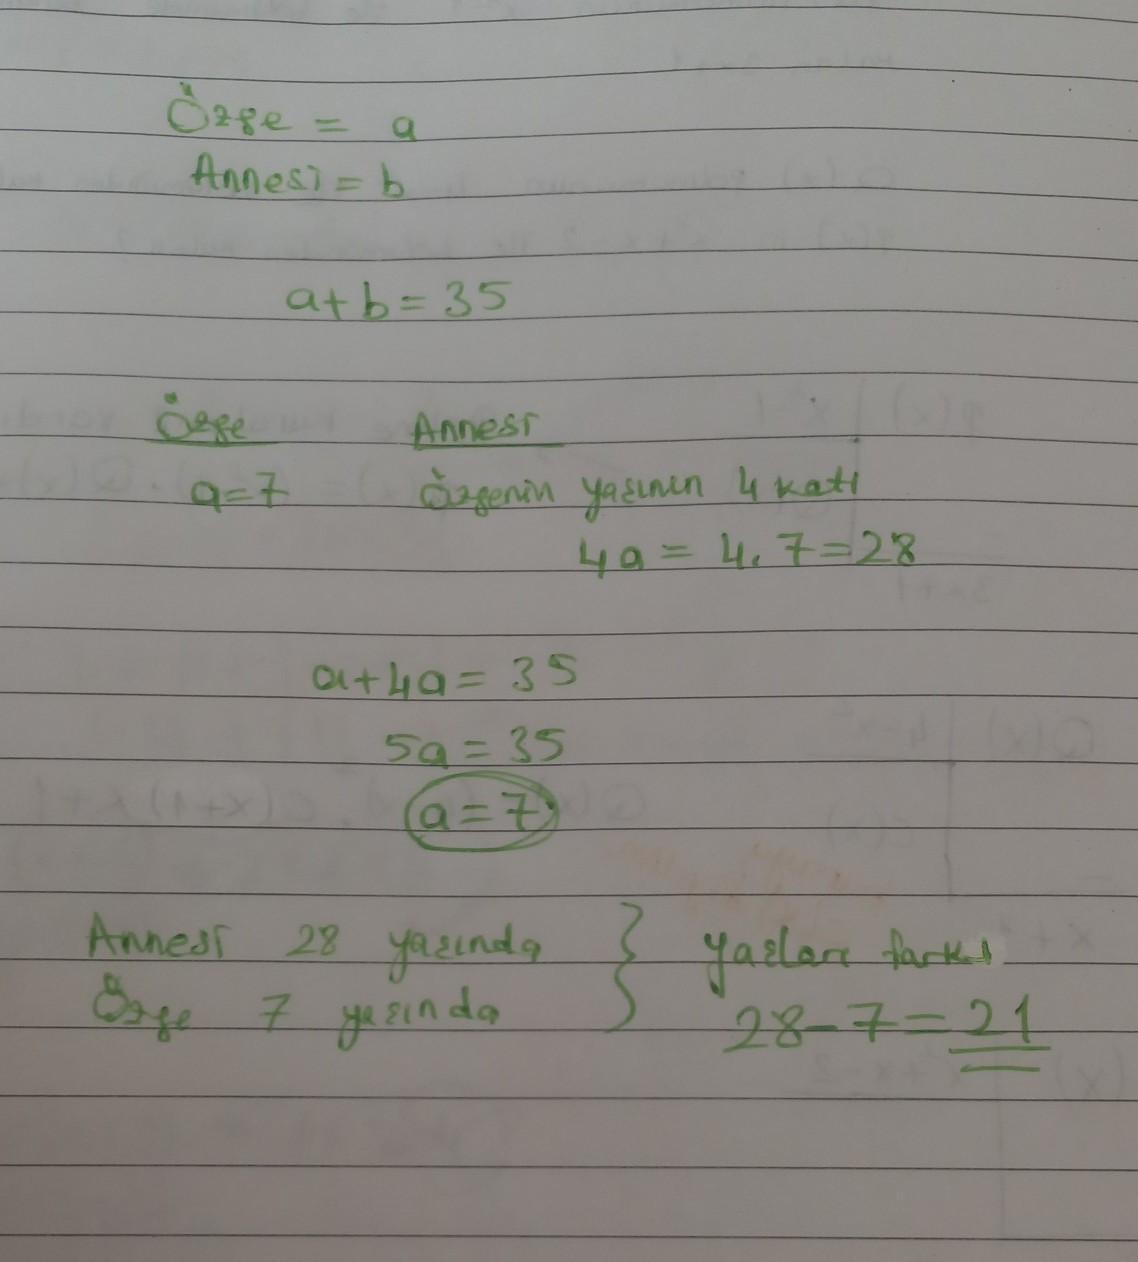 Özge = a
Annesi = b
a+b=35
Özge Annesi
a=7 Özgenin yaşının 4 katı
4a = 4.7=28
a+4a= 35
5a = 35
a=7
Annesi 28 yaşında } yaşları farkı
Özge 7 yaşında 28-7=21